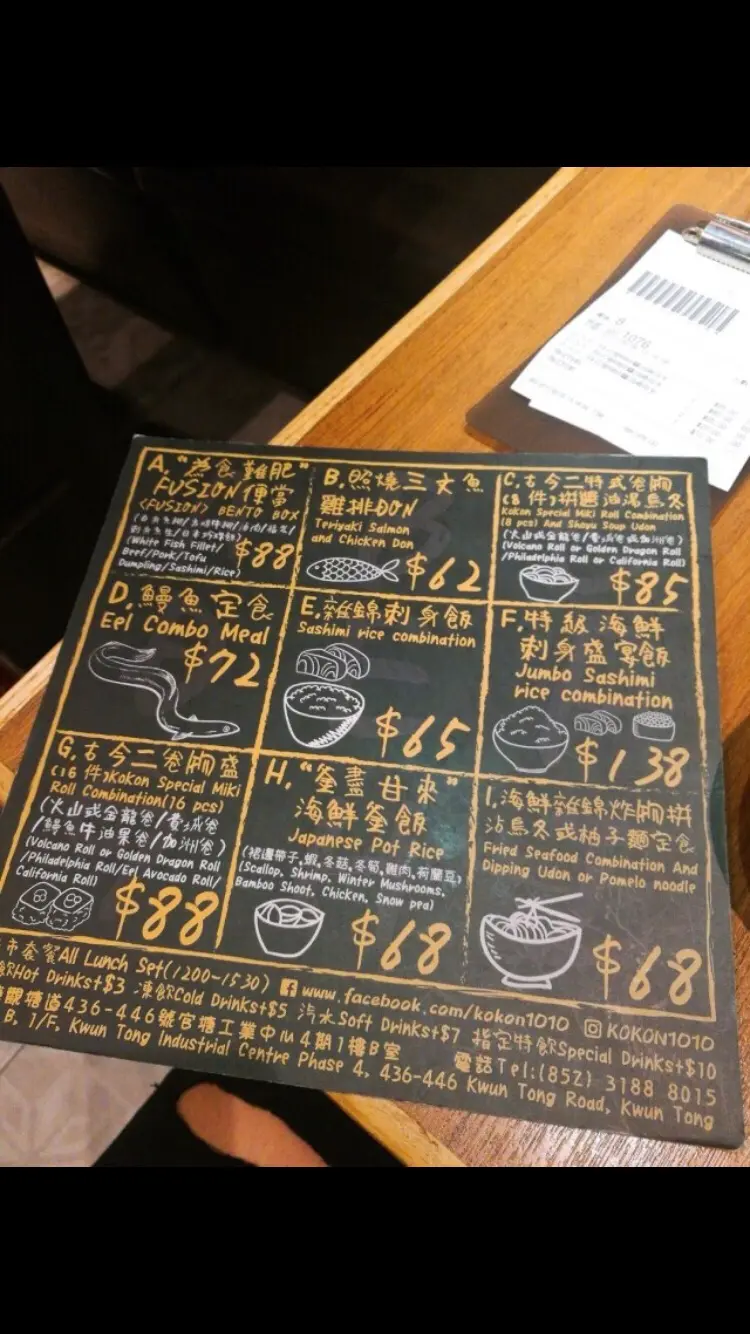 A. "為食難肥"
FUSION便當
<FUSION> BENTO BOX
(White Fish Fillet/
Beef/Pork/Tofu
Dumpling/Sashimi/Rice)
$88
B. 照燒三文魚
雞排DON
Teriyaki Salmon
and Chicken Don
$62
C. 古今二特式卷物
(8件)拼選油湯烏冬
Kokon Special Miki Roll Combination
(8 pcs) And Shoyu Soup Udon
(火山或金龍卷/費城卷或加洲卷)
(Volcano Roll or Golden Dragon Roll
/Philadelphia Roll or California Roll)
$85
D. 鰻魚定食
Eel Combo Meal
$72
E. 雜錦刺身飯
Sashimi rice combination
$65
F. 特級海鮮
刺身盛宴飯
Jumbo Sashimi
rice combination
$138
G. 古今二卷物盛
(16件)Kokon Special Miki
Roll Combination(16 pcs)
(火山或金龍卷/費城卷
/鰻魚牛油果卷/加洲卷)
(Volcano Roll or Golden Dragon Roll
/Philadelphia Roll/Eel Avocado Roll/
California Roll)
$88
H. "釜盡甘來"
海鮮釜飯
Japanese Pot Rice
(裙邊帶子,蝦,冬菇,冬筍,雞肉,荷蘭豆)
(Scallop, Shrimp, Winter Mushrooms,
Bamboo Shoot, Chicken, Snow pea)
$68
I. 海鮮雜錦炸物拼
沾烏冬或柚子麵定食
Fried Seafood Combination And
Dipping Udon or Pomelo noodle
$68
市套餐All Lunch Set(1200-1530) www.facebook.com/kokon1010 KOKON1010
飲Hot Drinks+$3 凍飲Cold Drinks+$5 汽水Soft Drinks+$7 指定特飲Special Drinks+$10
觀塘道436-446號官塘工業中心4期1樓B室 電話Tel:(852) 3188 8015
B, 1/F, Kwun Tong Industrial Centre Phase 4, 436-446 Kwun Tong Road, Kwun Tong